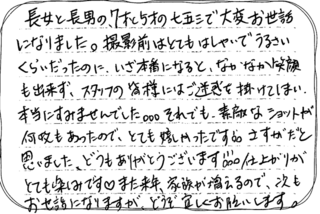 長女と長男の7才と5才の七五三で大変お世話
になりました。撮影前はとてもはしゃいでうるさい
くらいだったのに、いざ本番になると、なかなか笑顔
も出来ず、スタッフの皆様にはご迷惑を掛けてしまい、
本当にすみませんでした。。。それでも、素敵なショットが
何枚もあったので、とても嬉しかったです。。さすがだと
思いました、どうもありがとうございます。。。仕上がりが
とても楽しみです♡また来年、家族が増えるので、次も
お世話になりますが、どうぞ宜しくお願いします。